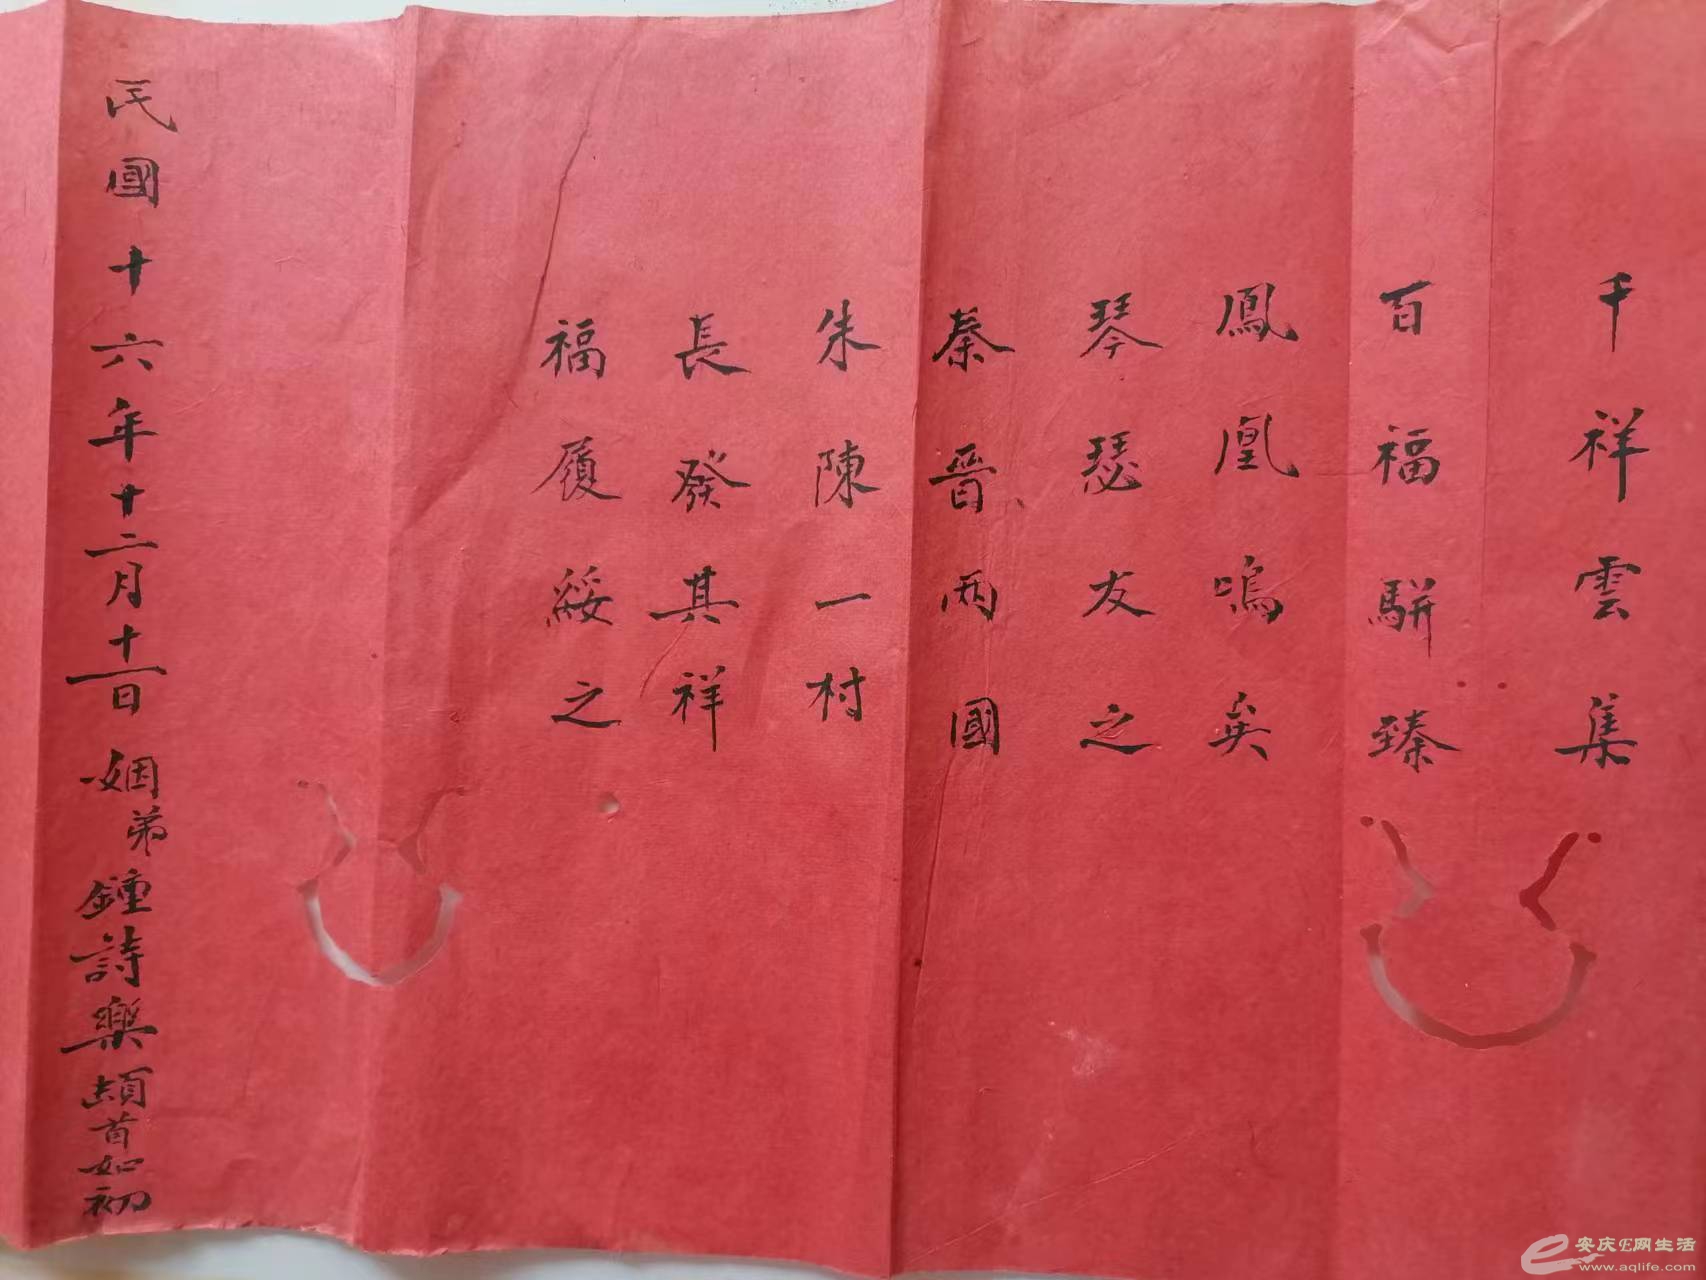 千祥雲集
百福駢臻
鳳凰鳴矣
琴瑟友之
秦晉兩國
朱陳一村
長發其祥
福履綏之
民國十六年十二月十二日 姻弟鍾詩樂頓首如初
安庆E网生活
www.aqlife.com